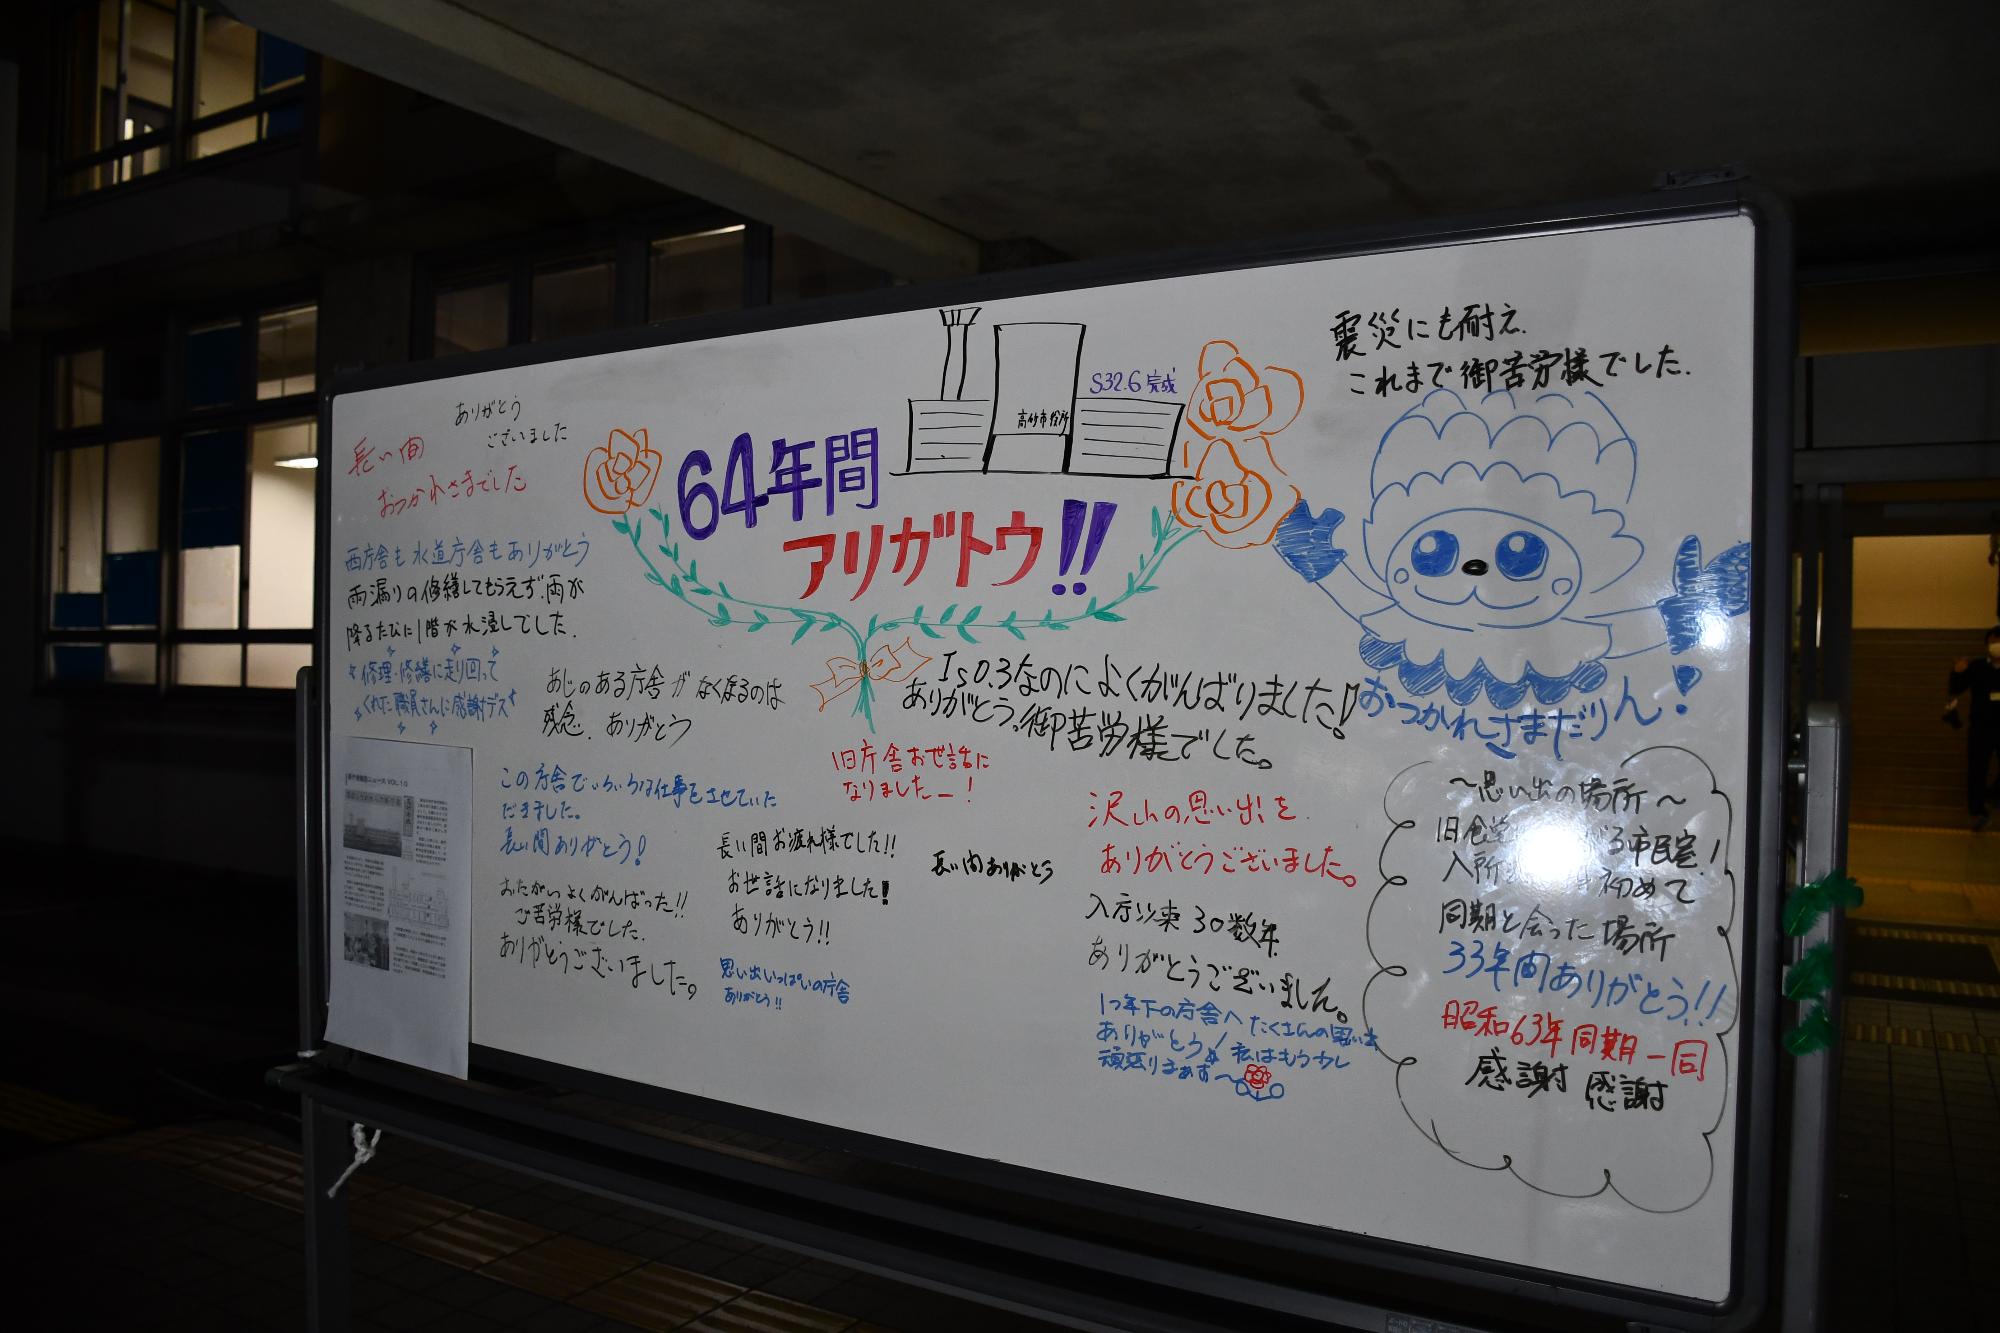 ありがとう
ございました
長い間
おつかれさまでした
西庁舎も水道庁舎もありがとう
雨漏りの修繕してもらえず、雨が
降るたびに1階が水浸しでした.
修理・修繕に走り回って
くれた職員さんに感謝デス
64年間
アリガトウ!!
S32.6完成
高砂市役所
震災にも耐え.
これまで御苦労様でした.
おつかれさまだりん!
あじのある庁舎がなくなるのは
残念. ありがとう
Is0.3なのによくがんばりました!
ありがとう。御苦労様でした。
旧庁舎お世話に
なりましたー!
この庁舎でいろいろな仕事をさせていた
だきました。
長い間ありがとう!
おたがいよくがんばった!!
ご苦労様でした.
ありがとうございました。
長い間お疲れ様でした!!
お世話になりました!
ありがとう!!
思い出いっぱいの庁舎
ありがとう!!
長い間ありがとう
沢山の思い出を
ありがとうございました。
入庁以来30数年
ありがとうございました。
1つ年下の庁舎へたくさんの思い出
ありがとう!
私はもう少し
頑張りまぁす〜
〜思い出の場所〜
旧食堂
市民室!
入所
初めて
同期と会った場所
33年間ありがとう!!
昭和63年同期一同
感謝 感謝